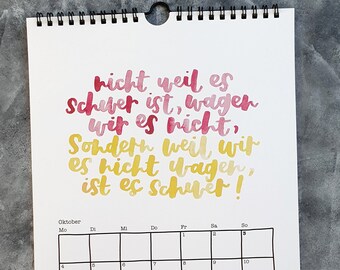 nicht weil es
schwer ist, wagen
wir es nicht,
Sondern weil wir
es nicht wagen,
ist es schwer!
Oktober
Mo Di Mi Do Fr Sa So
1 2 3
4 5 6 7 8 9 10